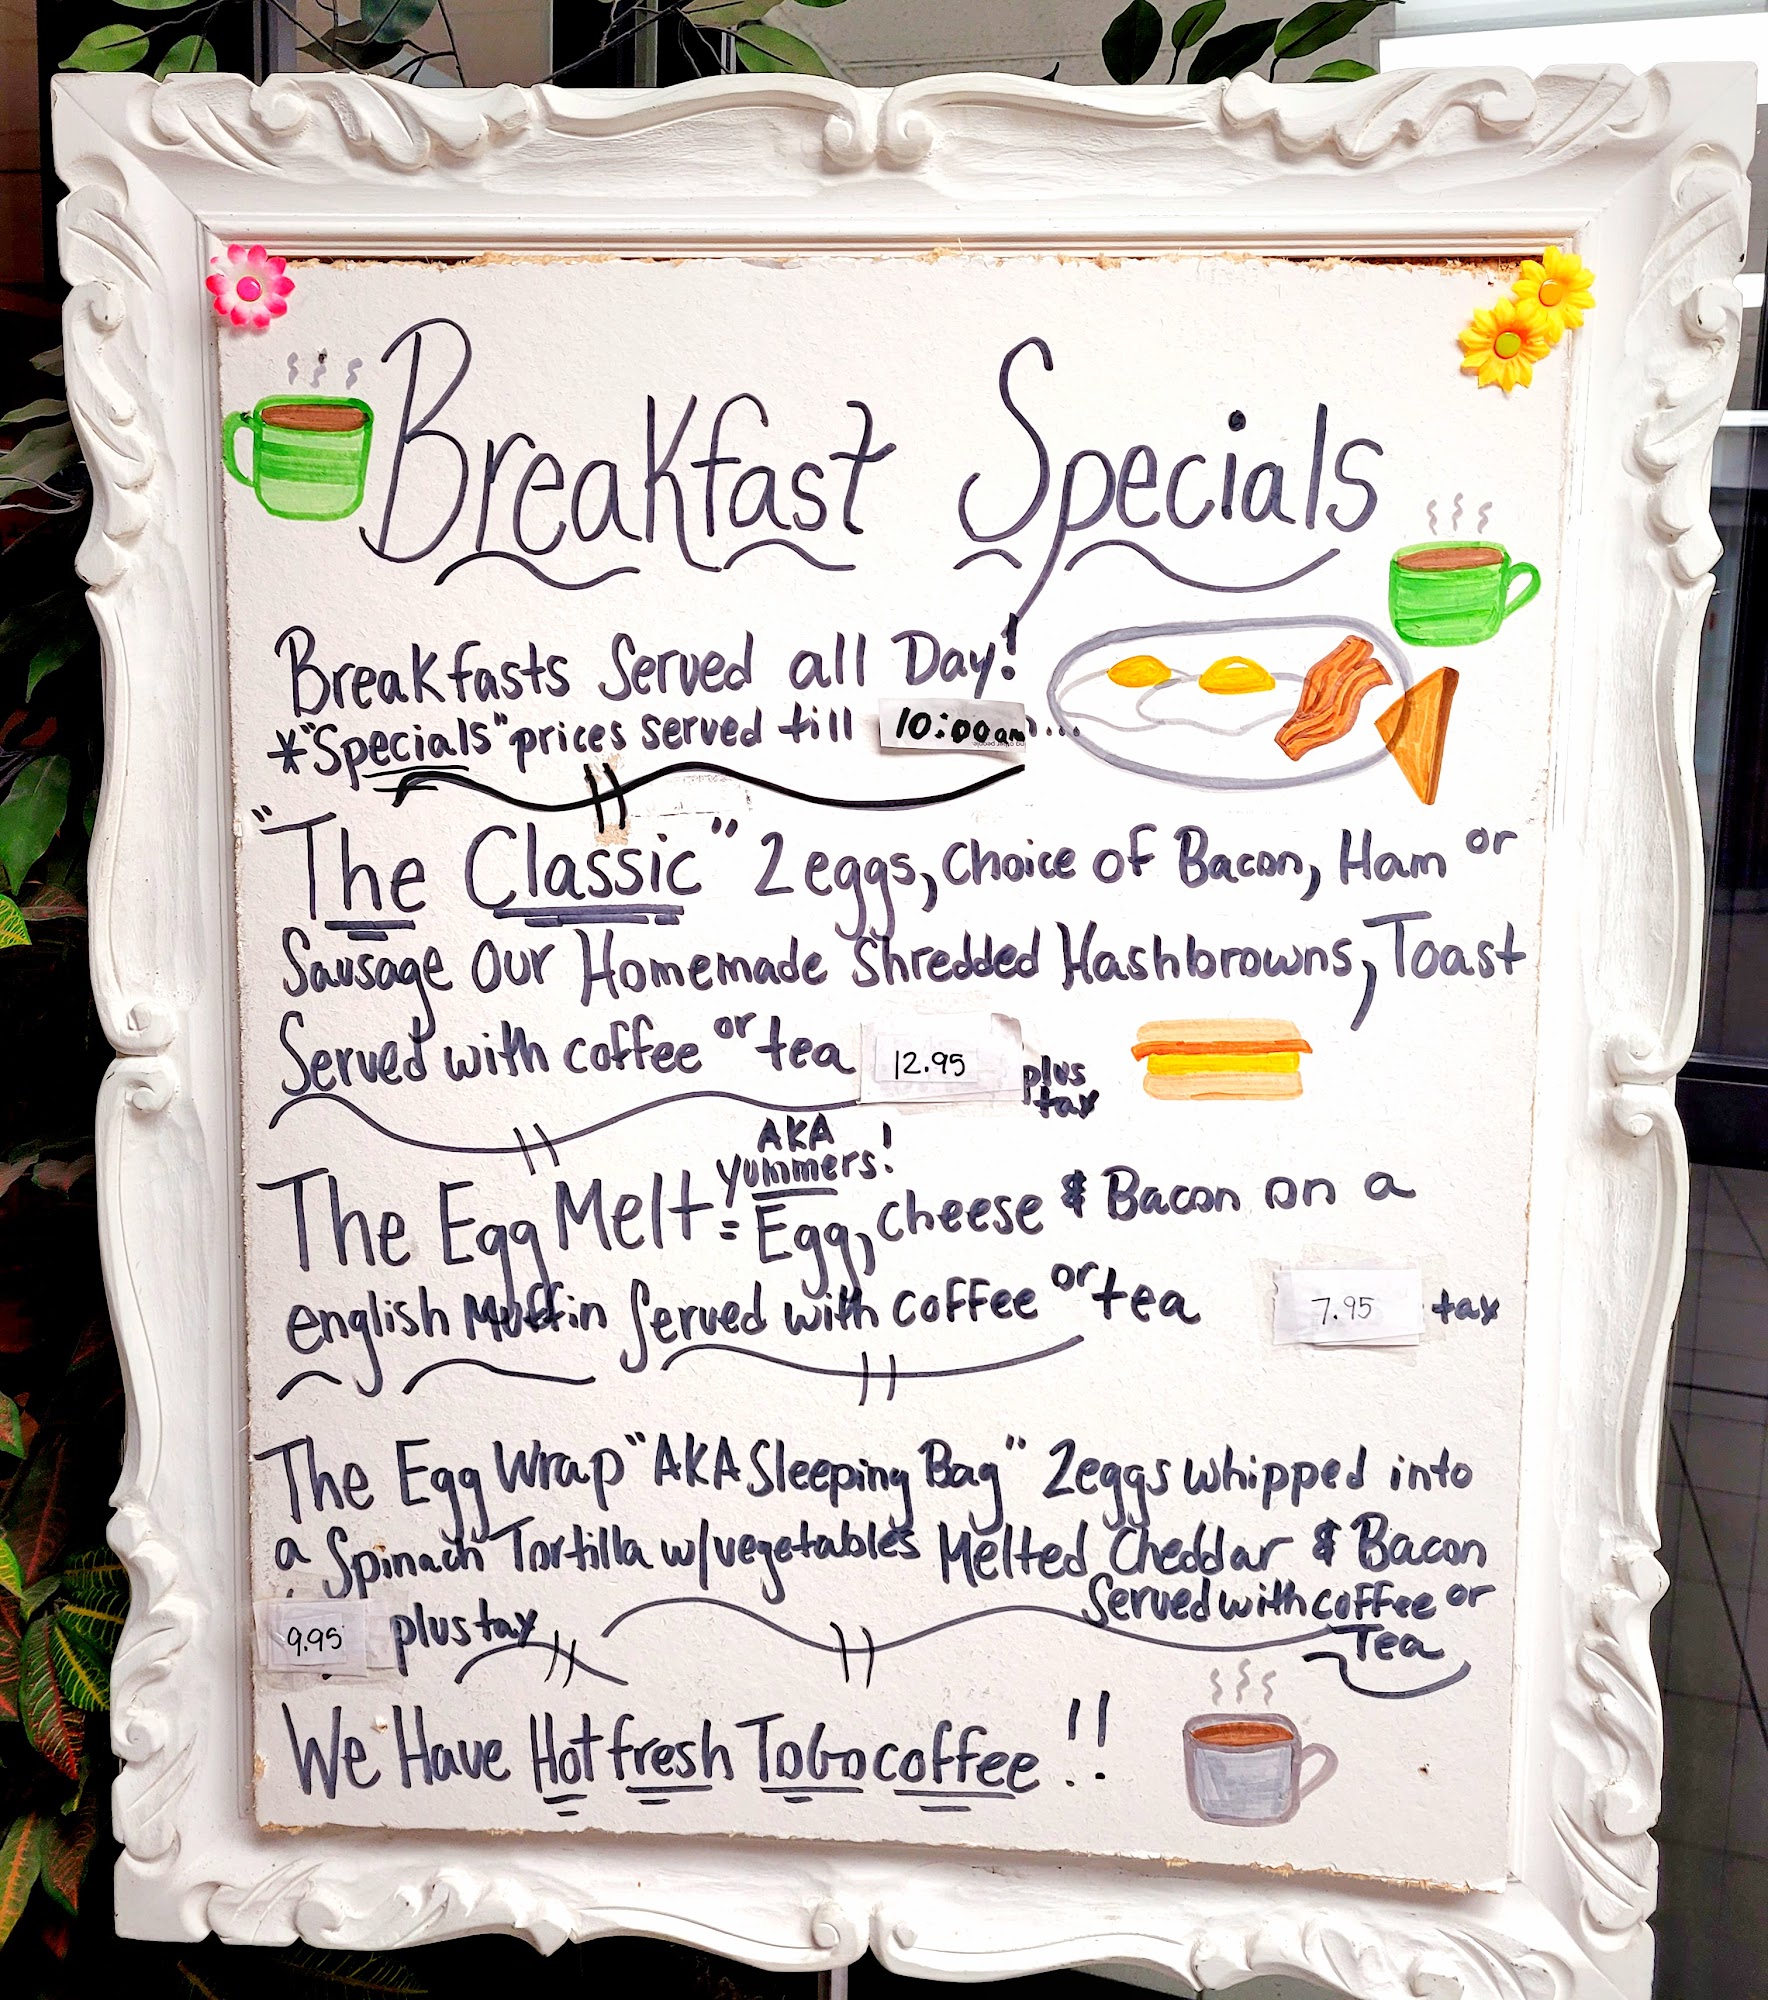 Breakfast Specials
Breakfasts Served all Day!
*"Specials" prices served till 10:00am...
"The Classic" 2 eggs, Choice of Bacon, Ham or
Sausage Our Homemade Shredded Hashbrowns, Toast
Served with coffee or tea 12.95 plus tax
AKA
Yummers!
The Egg Melt = Egg, cheese & Bacon on a
english Muffin Served with coffee or tea 7.95 tax
The Egg Wrap "AKA Sleeping Bag" 2eggs whipped into
a Spinach Tortilla w/vegetables Melted Cheddar & Bacon
Served with coffee or
Tea
9.95 plus tax
We Have Hot fresh ToGo coffee!!